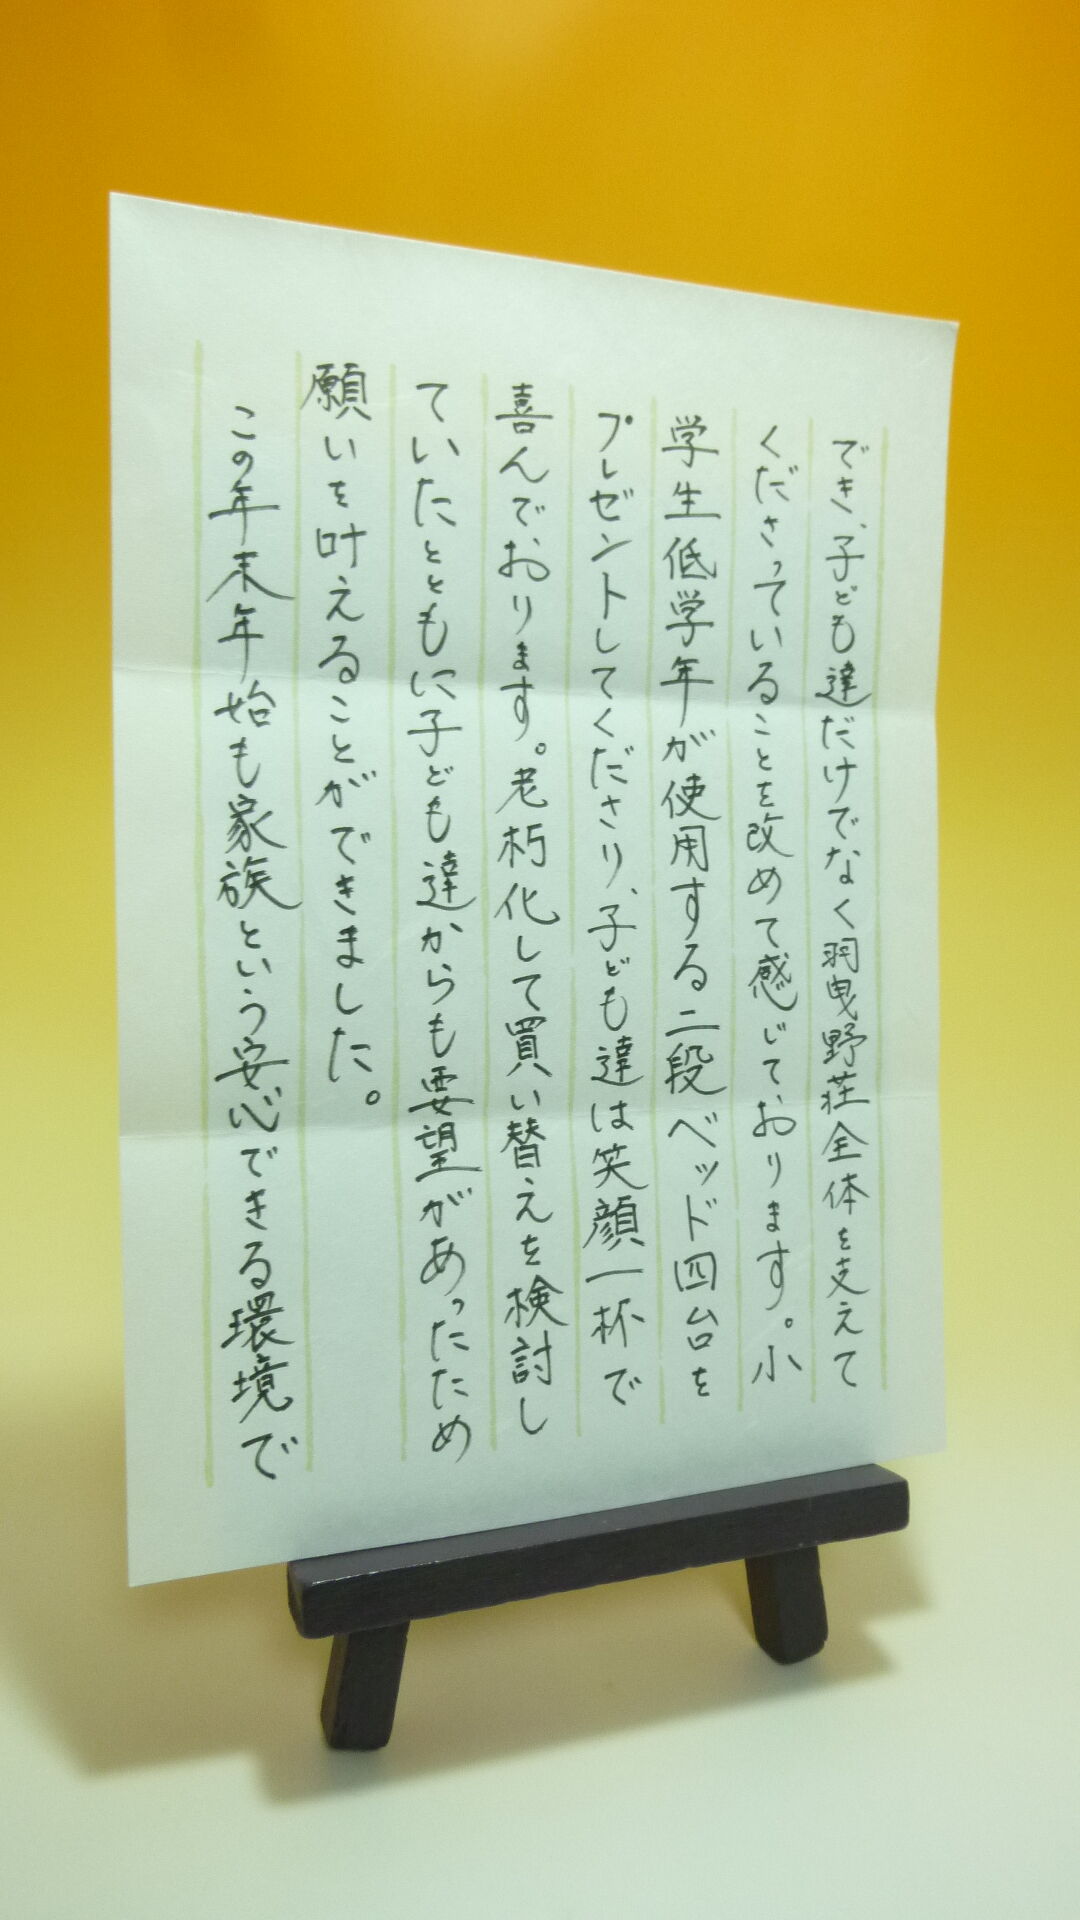 でき、子ども達だけでなく羽曳野荘全体を支えて
くださっていることを改めて感じております。小
学生低学年が使用する二段ベッド四台を
プレゼントしてくださり、子ども達は笑顔一杯で
喜んでおります。老朽化して買い替えを検討し
ていたとともに子ども達からも要望があったため
願いを叶えることができました。
この年末年始も家族という安心できる環境で